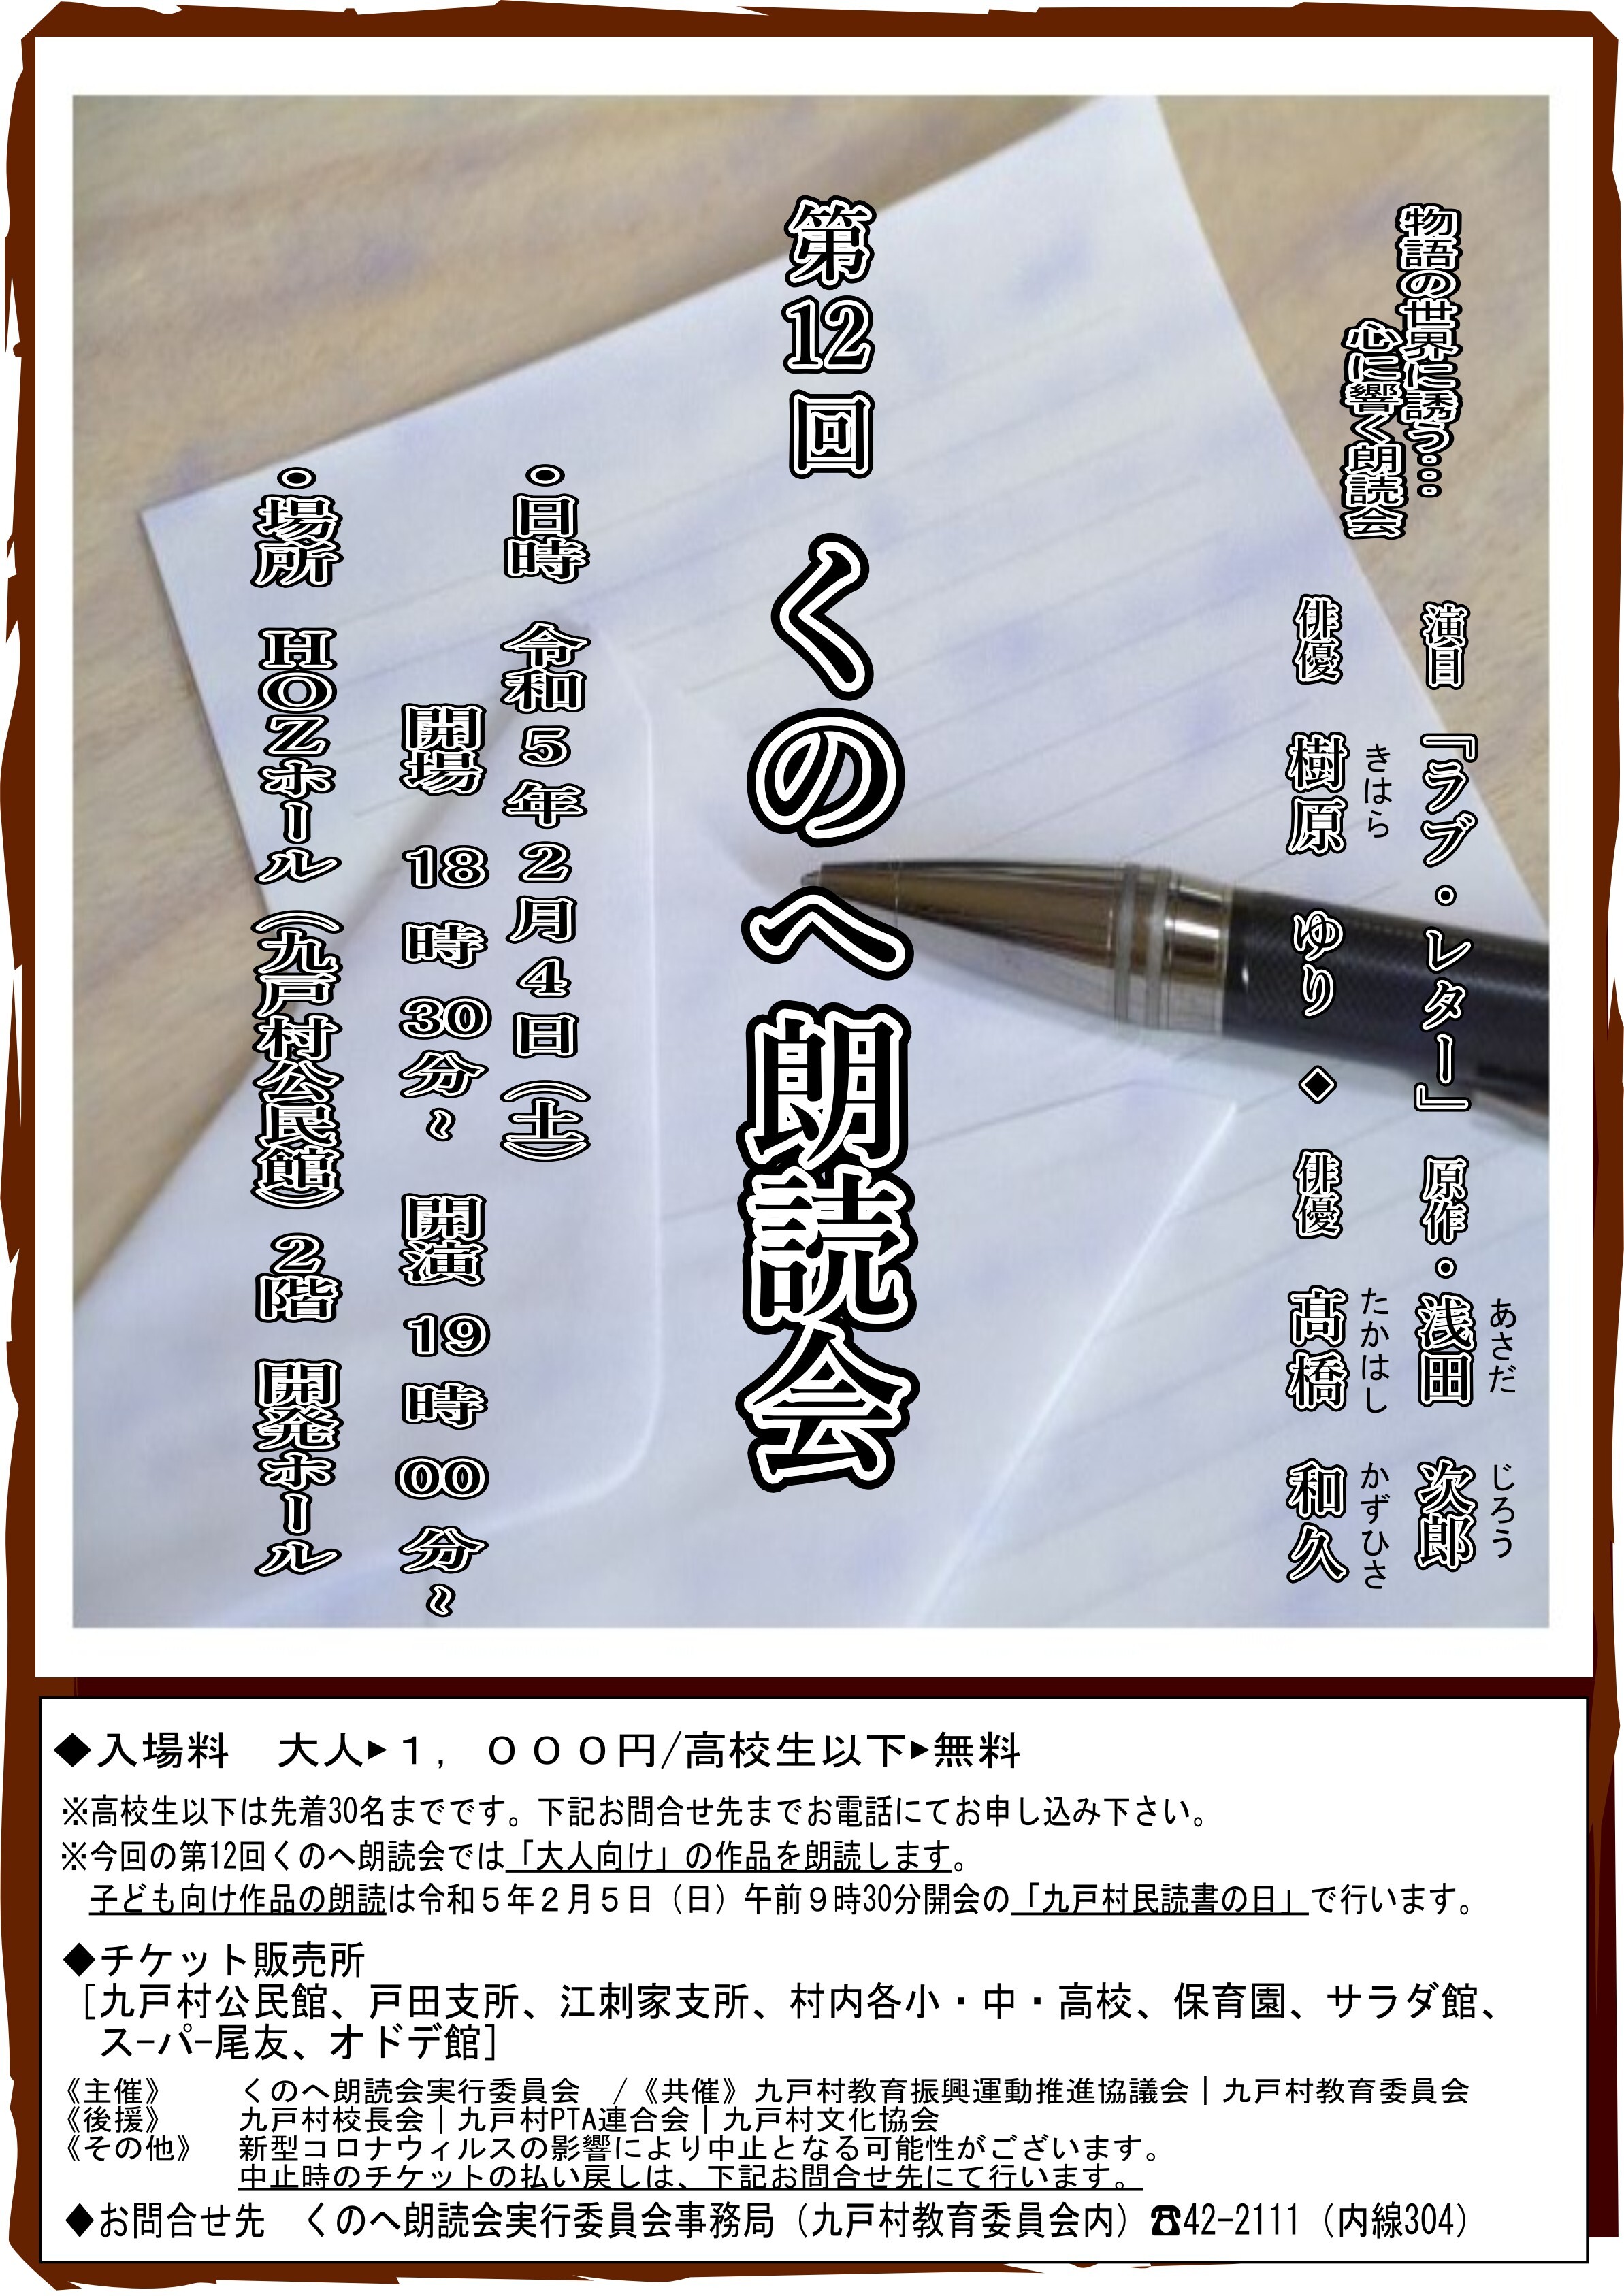 物語の世界に誘う…
心に響く朗読会
演目 『ラブ・レター』 原作・浅田 次郎
あさだ じろう
俳優 樹原 ゆり ◆ 俳優 髙橋 和久
きはら たかはし かずひさ
第12回 くのへ朗読会
・日時 令和5年2月4日(土)
開場 18時30分~ 開演 19時00分~
・場所 HOZホール(九戸村公民館)2階 開発ホール
◆入場料 大人▶1,000円/高校生以下▶無料
※高校生以下は先着30名までです。下記お問合せ先までお電話にてお申し込み下さい。
※今回の第12回くのへ朗読会では「大人向け」の作品を朗読します。
子ども向け作品の朗読は令和5年2月5日(日)午前9時30分開会の「九戸村民読書の日」で行います。
◆チケット販売所
[九戸村公民館、戸田支所、江刺家支所、村内各小・中・高校、保育園、サラダ館、
スーパー尾友、オドデ館]
《主催》 くのへ朗読会実行委員会 /《共催》九戸村教育振興運動推進協議会|九戸村教育委員会
《後援》 九戸村校長会|九戸村PTA連合会|九戸村文化協会
《その他》 新型コロナウィルスの影響により中止となる可能性がございます。
中止時のチケットの払い戻しは、下記お問合せ先にて行います。
◆お問合せ先 くのへ朗読会実行委員会事務局(九戸村教育委員会内)☎42-2111(内線304)